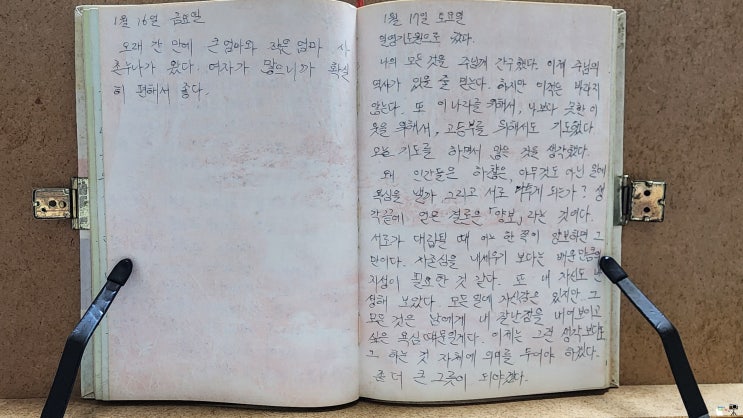 1월 16일 금요일
오래 간 만에 큰 엄마와 작은 엄마 사
촌누나가 왔다. 여자가 많으니까 확실
히 편해서 좋다.
1월 17일 토요일
열린기도원으로 갔다.
나의 모든 것을 주님께 간구했다. 이제 주님의
역사가 있을 줄 믿는다. 하지만 이적은 바라지
않는다. 또 이 나라를 위해서, 나보다 못한 이
웃을 위해서, 고등부를 위해서도 기도했다.
오늘 기도를 하면서 많은 것을 생각했다.
왜 인간들은 하찮은, 아무것도 아닌 일에
욕심을 낼까. 그리고 서로 다투게 되는가? 생
각끝에 얻은 결론은 「양보」라는 것이다.
서로가 대립될 때 어느 한 쪽이 양보하면 그
만이다. 자존심을 내세우기 보다는 배운만큼의
지성이 필요한 것 같다. 또 내 자신도 반
성해 보았다. 모든 일에 자신감은 있지만 그
모든 것은 남에게 내 잘난점을 내어보이고
싶은 욕심 때문일게다. 이제는 그런 생각보다도
그 하는 것 자체에 의미를 두어야 하겠다.
좀 더 큰 그릇이 되야겠다.